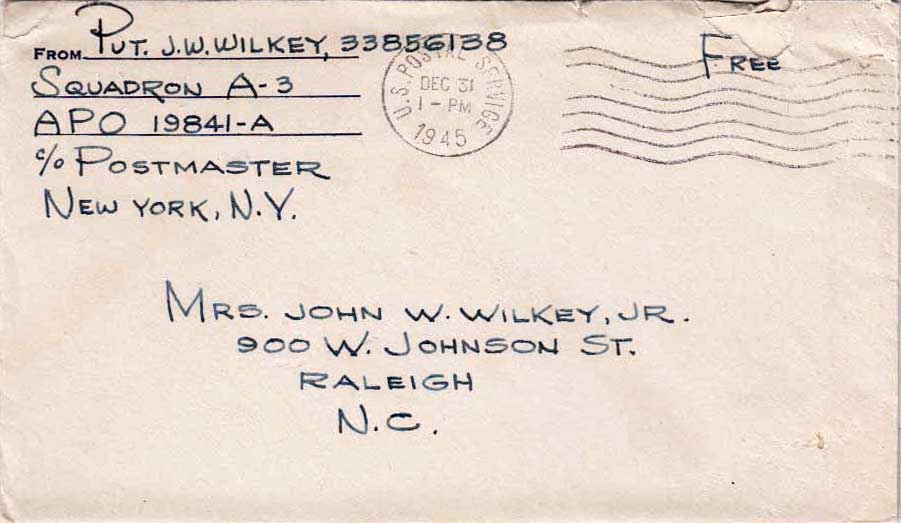 FROM PVT. J.W. WILKEY, 33856138
SQUADRON A-3
APO 19841-A
c/o POSTMASTER
NEW YORK, N.Y.
U.S. POSTAL SERVICE
DEC 31
1-PM
1945
FREE
MRS. JOHN W. WILKEY, JR.
900 W. JOHNSON ST.
RALEIGH
N.C.